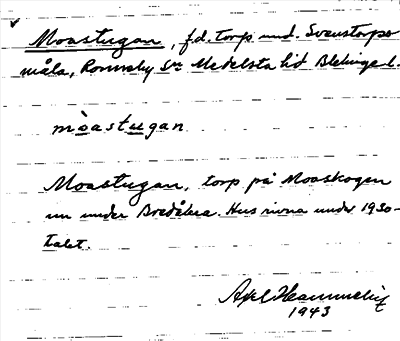 Moastugan, f.d. torp und. Svenstorps-
måla, Ronneby sn Medelsta hd Blekinge l.
mòastugan
Moastugan, torp på Moaskogen
un under Bredåkra. Hus rivna under 1930-
talet.
Axel
1943